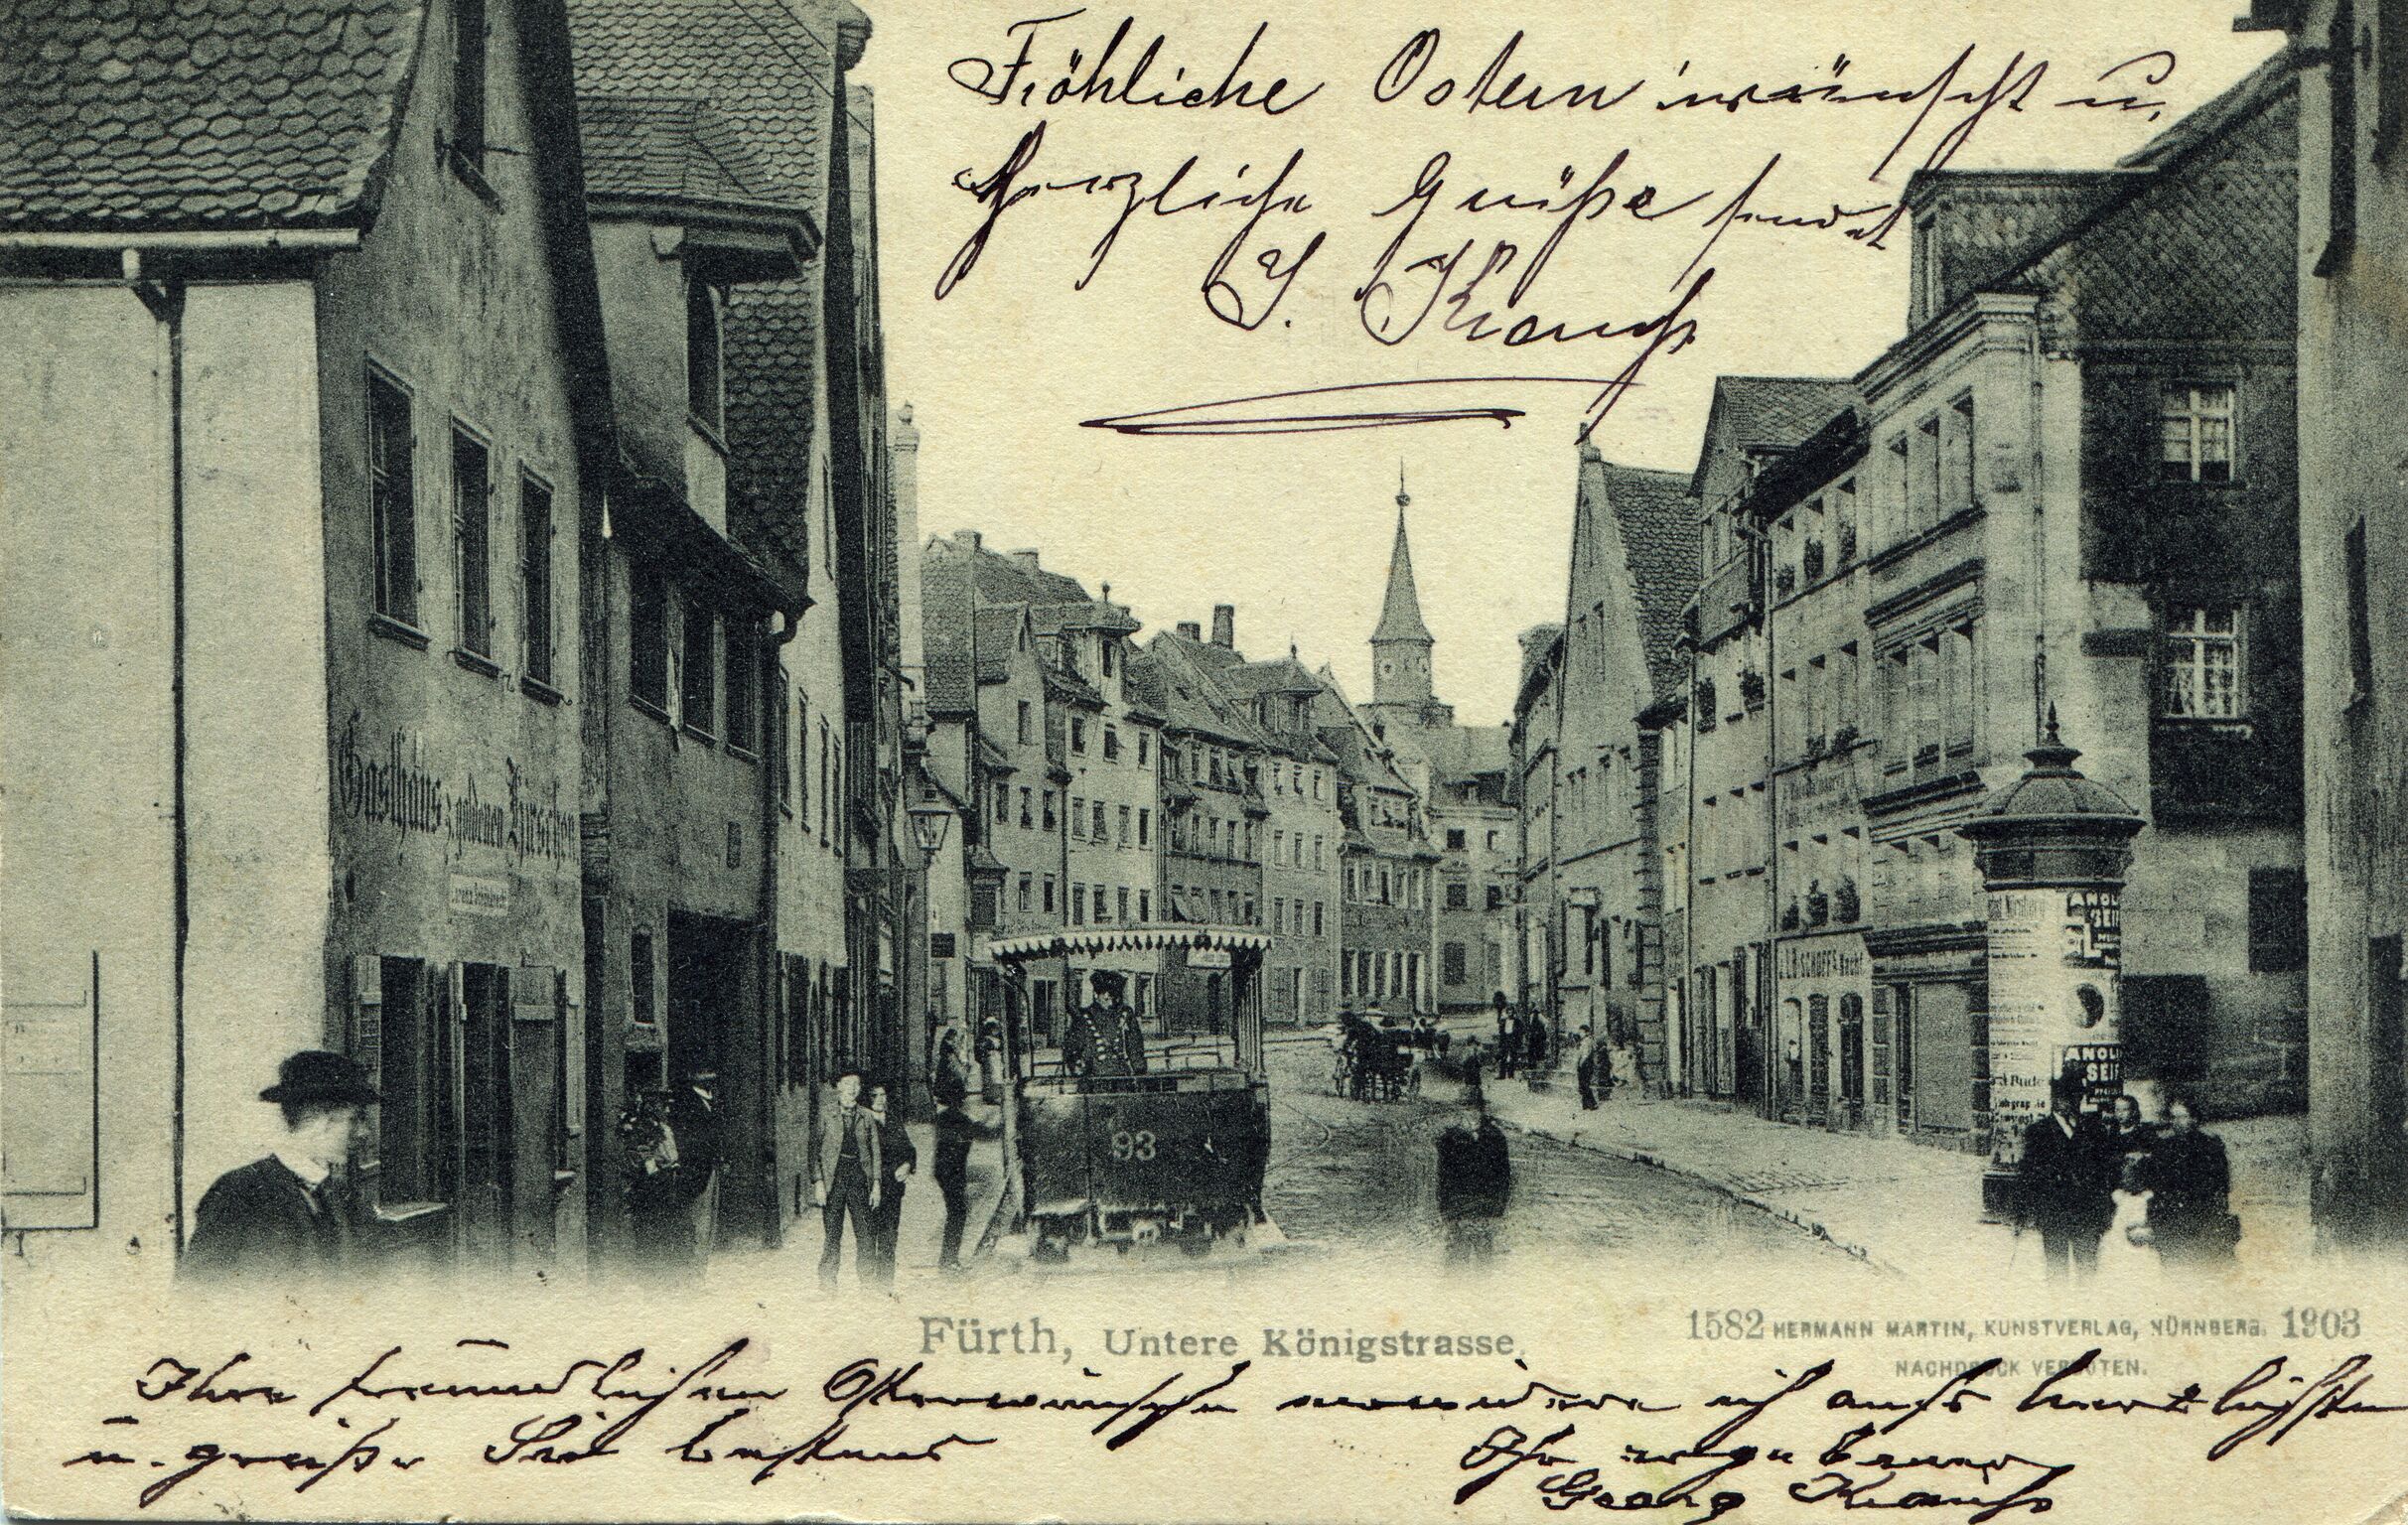 Fröhliche Ostern wünscht u.
herzliche Grüße sendet
J. Krauß
Gasthaus z. goldenen Hirschen
93
ANOL
SEIF
ANOL
SEIF
Fürth, Untere Königstrasse.
1582 HERMANN MARTIN, KUNSTVERLAG, NÜRNBERG. 1903
NACHDRUCK VERBOTEN.
Ihre freundlichen Osterwünsche erwidere ich aufs herzlichste
u. grüße Sie bestens
Ihr ergebener
Georg Krauß